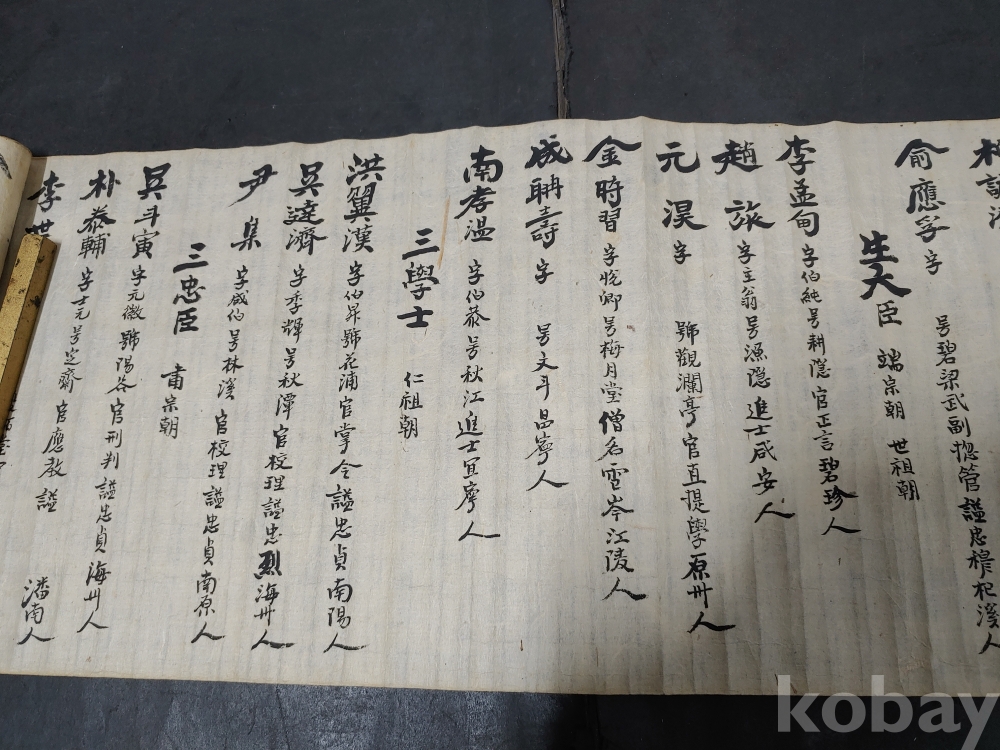 俞應孚 字 号碧梁武副摠管謚忠穆杞溪人
生六臣 端宗朝 世祖朝
李孟甸 字伯純号耕隠官正言碧珍人
趙旅 字主翁号漁隠進士咸安人
元昊 字 號觀瀾亭官直提學原州人
金時習 字悅卿号梅月堂僧名雪岑江陵人
成聃壽 字 号文斗昌寧人
南孝溫 字伯恭号秋江進士宜寧人
三學士 仁祖朝
洪翼漢 字伯昇號花浦官掌令謚忠貞南陽人
吳達濟 字季輝号秋潭官校理謚忠烈海州人
尹集 字成伯号林溪官校理謚忠貞南原人
三忠臣 肅宗朝
吳斗寅 字元徵號陽谷官刑判謚忠貞海州人
朴泰輔 字士元号定齋官應敎謚 潘南人
李世
kobay